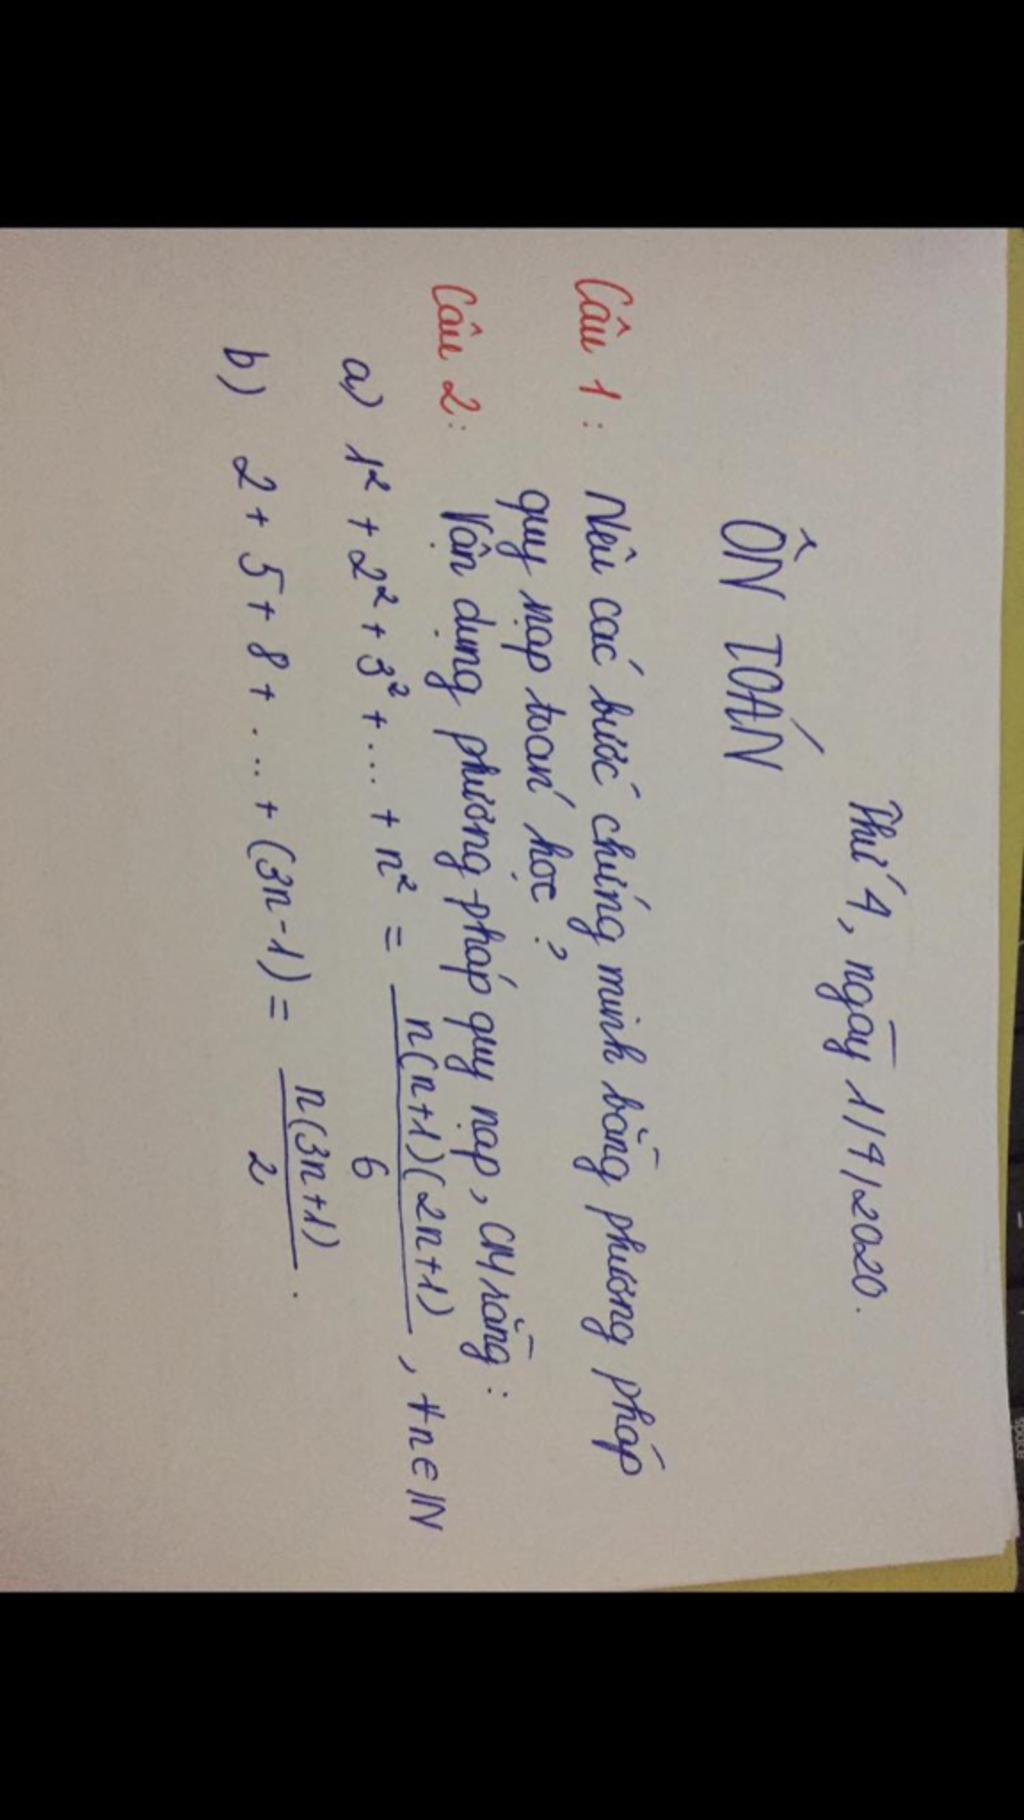 Thứ 4, ngày 1/4/2020.
ÔN TOÁN
Câu 1: Nêu các bước chứng minh bằng phương pháp
quy nạp toán học?
Câu 2: Vận dụng phương pháp quy nạp, CM rằng:
a) 1² + 2² + 3² + ... + n² = n(n+1)(2n+1)/6, ∀n∈ℕ
b) 2 + 5 + 8 + ... + (3n-1) = n(3n+1)/2.